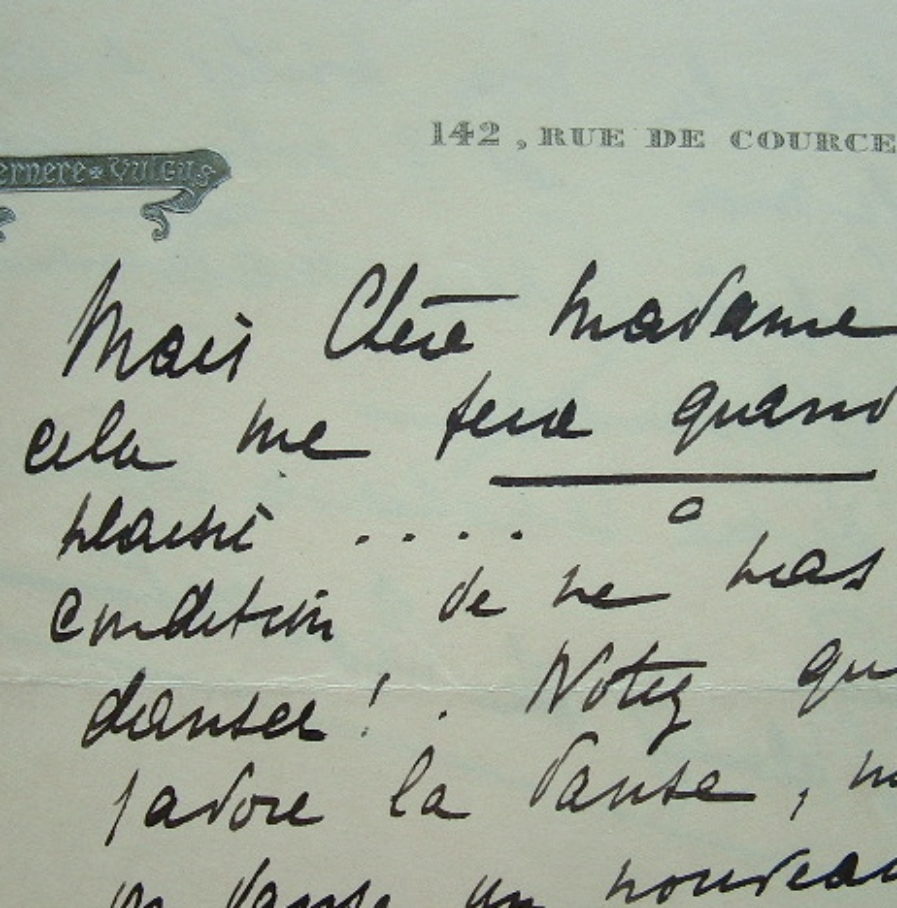 142, RUE DE COURCE
ernere VULGUS
Mais Chère Madame
cela me fera quand
plaisir ....
à
condition de ne pas
danser ! . Notez qu
j'adore la danse, m
on danse un nouveau